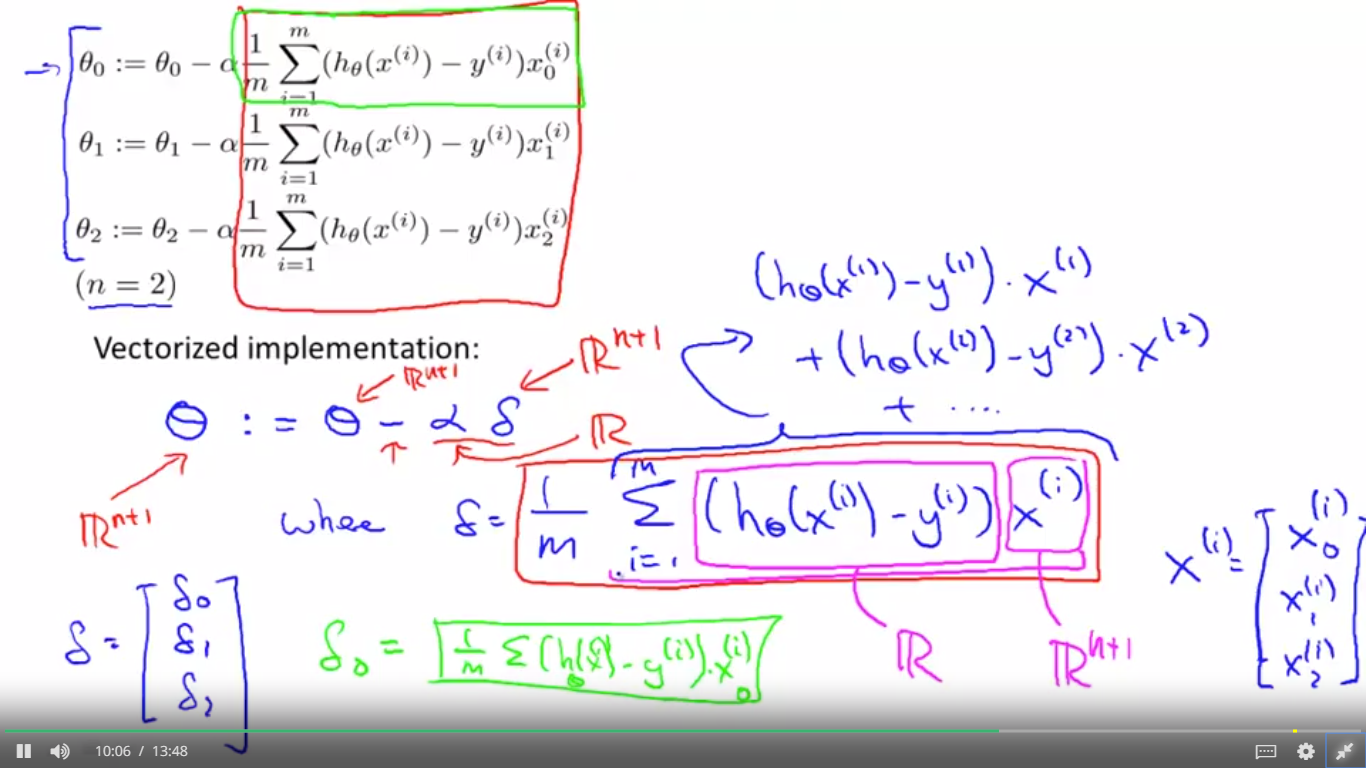 θ₀ := θ₀ − α 1/m ∑_{i=1}^{m} (h_θ(x^{(i)}) − y^{(i)})x_0^{(i)}
θ₁ := θ₁ − α 1/m ∑_{i=1}^{m} (h_θ(x^{(i)}) − y^{(i)})x_1^{(i)}
θ₂ := θ₂ − α 1/m ∑_{i=1}^{m} (h_θ(x^{(i)}) − y^{(i)})x_2^{(i)}
(n = 2)
(h_θ(x^{(1)}) − y^{(1)}) · x^{(1)}
+ (h_θ(x^{(2)}) − y^{(2)}) · x^{(2)}
+ ....
Vectorized implementation:
ℝ^{n+1}
ℝ^{n+1}
θ := θ − α δ
ℝ
ℝ^{n+1}
where δ = 1/m ∑_{i=1}^{m} (h_θ(x^{(i)}) − y^{(i)}) x^{(i)}
x^{(i)} = [x_0^{(i)} x_1^{(i)} x_2^{(i)}]
δ = [δ₀ δ₁ δ₂]
δ₀ = 1/m ∑ (h_θ(x^{(i)}) − y^{(i)}) · x_0^{(i)}
ℝ
ℝ^{n+1}
10:06 / 13:48